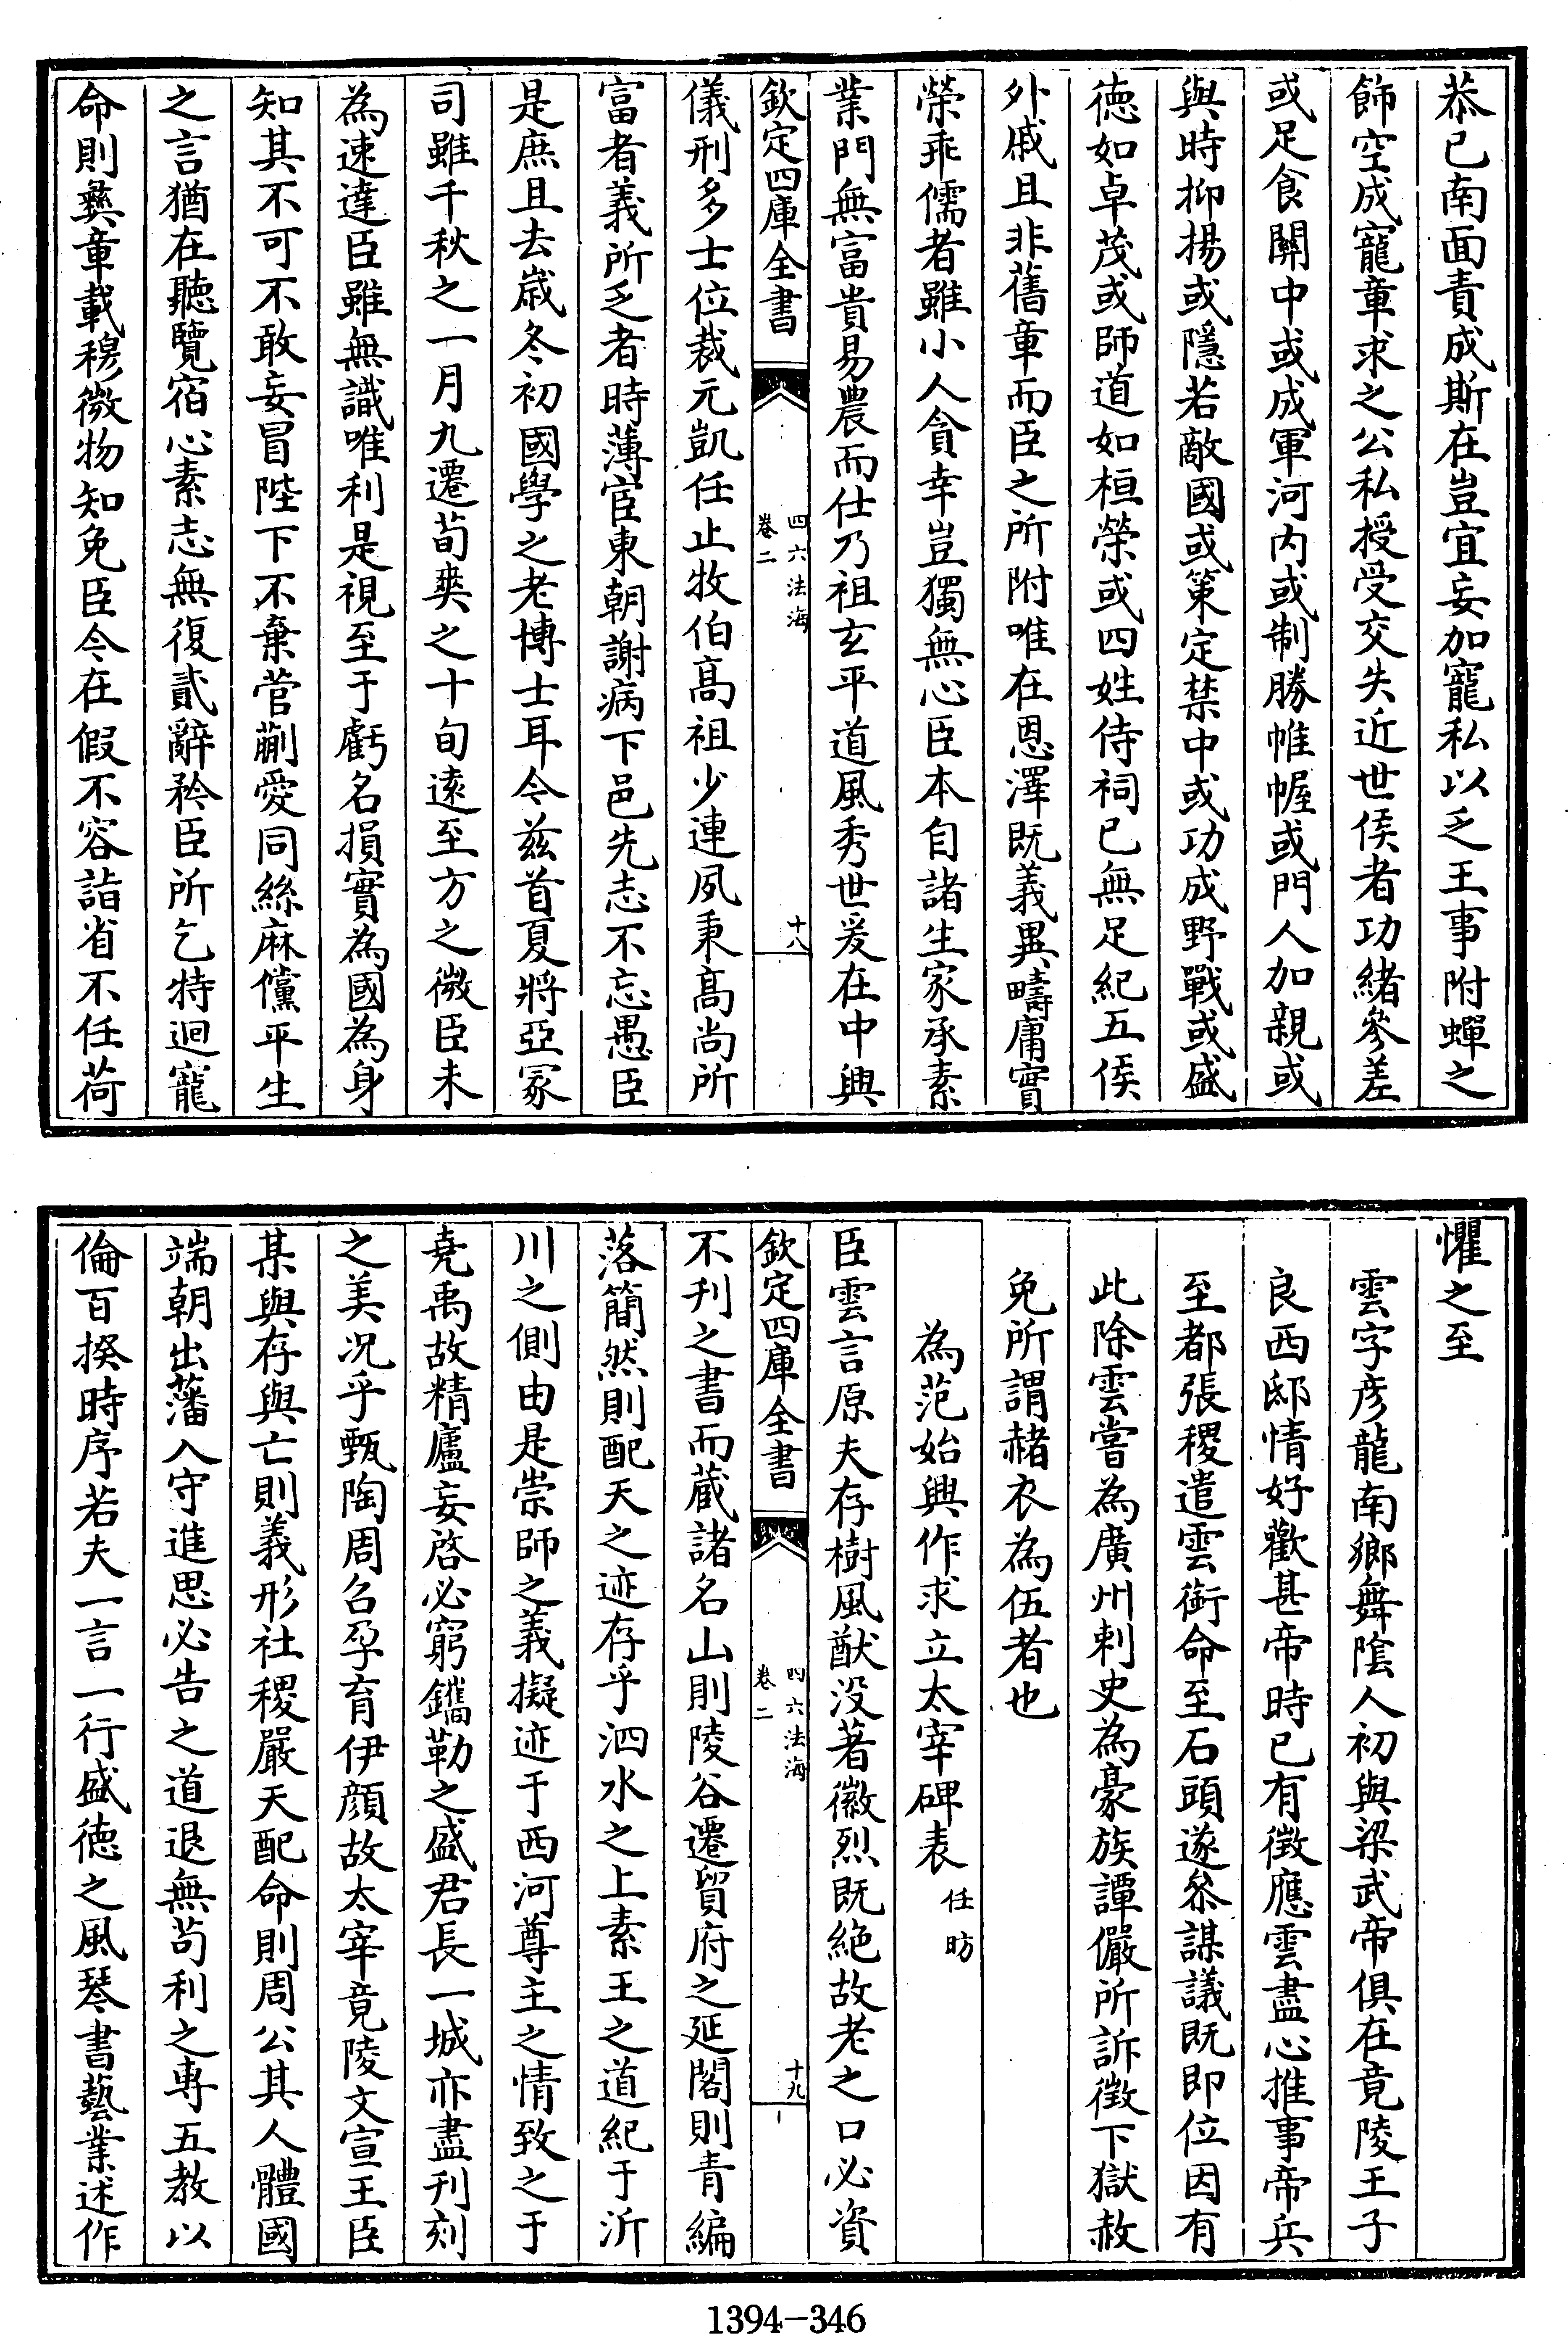 恭已南面責成斯在豈宜妄加寵私以乏王事附蟬之
飾空成寵章求之公私授受交失近世侯者功緒參差
或足食關中或成軍河内或制勝帷幄或門人加親或
與時抑揚或隱若敵國或策定禁中或功成野戰或盛
徳如卓茂或師道如桓榮或四姓侍祠已無足紀五侯
外戚且非舊章而臣之所附唯在恩澤既義異疇庸實
榮乖儒者雖小人貪幸豈獨無心臣本自諸生家承素
業門無富貴易農而仕乃祖玄平道風秀世爰在中興
欽定四庫全書
四六法海
卷二
十八
儀刑多士位裁元凱任止牧伯髙祖少連夙秉髙尚所
富者義所乏者時薄宦東朝謝病下邑先志不忘愚臣
是庶且去嵗冬初國學之老博士耳今兹首夏將亞冢
司雖千秋之一月九遷荀爽之十旬逺至方之微臣未
為速達臣雖無識唯利是視至于虧名損實為國為身
知其不可不敢妄冒陛下不棄菅蒯愛同絲麻儻平生
之言猶在聽覽宿心素志無復貳辭矜臣所乞特迴寵
命則彝章載穆微物知免臣今在假不容詣省不任荷
懼之至
雲字彦龍南鄉舞隂人初與梁武帝俱在竟陵王子
良西邸情好歡甚帝時已有徴應雲盡心推事帝兵
至都張稷遣雲銜命至石頭遂叅謀議既即位因有
此除雲嘗為廣州刺史為豪族譚儼所訴徵下獄赦
免所謂赭衣為伍者也
為范始興作求立太宰碑表
任昉
臣雲言原夫存樹風猷没著徽烈既絶故老之口必資
欽定四庫全書
四六法海
卷二
十九
不刊之書而藏諸名山則陵谷遷貿府之延閣則青編
落簡然則配天之迹存乎泗水之上素王之道紀于沂
川之側由是崇師之義擬迹于西河尊主之情致之于
堯禹故精廬妄啓必窮鐫勒之盛君長一城亦盡刊刻
之美况乎甄陶周召孕育伊顔故太宰竟陵文宣王臣
某與存與亡則義形社稷嚴天配命則周公其人體國
端朝出藩入守進思必告之道退無苟利之専五教以
倫百揆時序若夫一言一行盛徳之風琴書藝業述作
1394-346